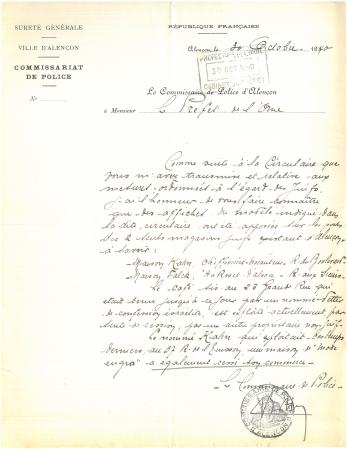 RÉPUBLIQUE FRANÇAISE
SURETÉ GÉNÉRALE
VILLE D'ALENÇON
COMMISSARIAT
DE POLICE
N°
Alençon, le 30 Octobre 1940
30 OCT
Le Commissaire de Police d'Alençon
à Monsieur Le Préfet de l'Orne
Comme suite à la Circulaire que
vous m'avez transmise et relative aux
mesures ordonnées à l'égard des Juifs
j'ai l'honneur de vous faire connaître
que des affiches du modèle indiqué dans
la dite circulaire ont été apposées sur les
des 2 seuls magasins juifs existant à Alençon
à savoir :
- Maison Kahn,
- Maison
Le café sis au 23 Grande Rue qui
était tenu jusqu'à ce jour par un nommé
de confession israélite, est exploité actuellement par
suite de cession, par un autre propriétaire non juif.
Le nommé Kahn qui exploitait
au 57 R. de une maison de "
en gros" a également cessé son commerce.
Le Commissaire de Police